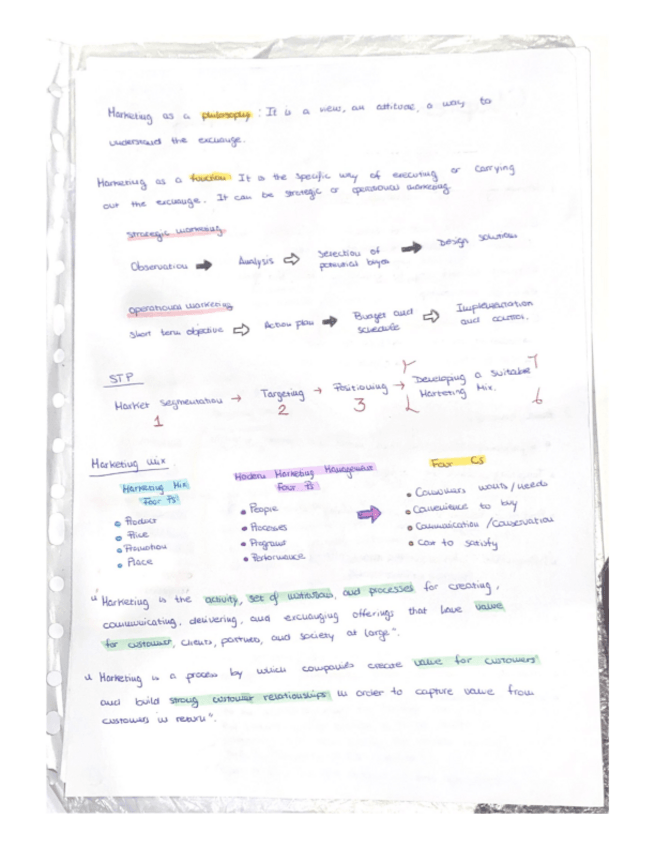 Marketing as a philosophy: It is a view, an attitude, a way to
understand the exchange.
Marketing as a function: It is the specific way of executing or carrying
out the exchange. It can be strategic or operational marketing.
strategic marketing
Observation → Analysis ⇨ Selection of potential buyer → Design solutions
operational marketing
Short term objective ⇨ Action plan → Budget and schedule ⇨ Implementation and control.
STP
Market Segmentation → Targeting → Positioning → Developing a suitable Marketing Mix.
1 2 3
Marketing Mix
Marketing Mix Four Ps
• Product
• Price
• Promotion
• Place
Modern Marketing Management Four Ps
• People
• Processes
• Programs
• Performance
Four Cs
• Consumers wants/needs
• Convenience to buy
• Communication /
• Cost to satisfy
"Marketing is the activity, set of institutions, and processes for creating,
communicating, delivering, and exchanging offerings that have value
for customer, clients, partners, and society at large".
"Marketing is a process by which companies create value for customers
and build strong customer relationships in order to capture value from
customers in return".